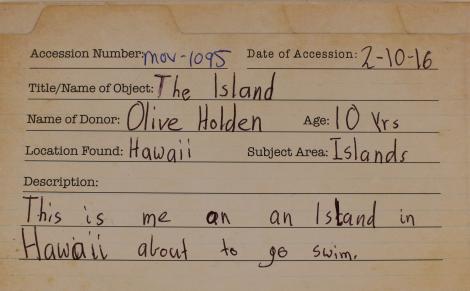 Accession Number: mov-1095 Date of Accession: 2-10-16
Title/Name of Object: The Island
Name of Donor: Olive Holden Age: 10 Yrs
Location Found: Hawaii Subject Area: Islands
Description:
This is me an an Island in
Hawaii about to go swim.